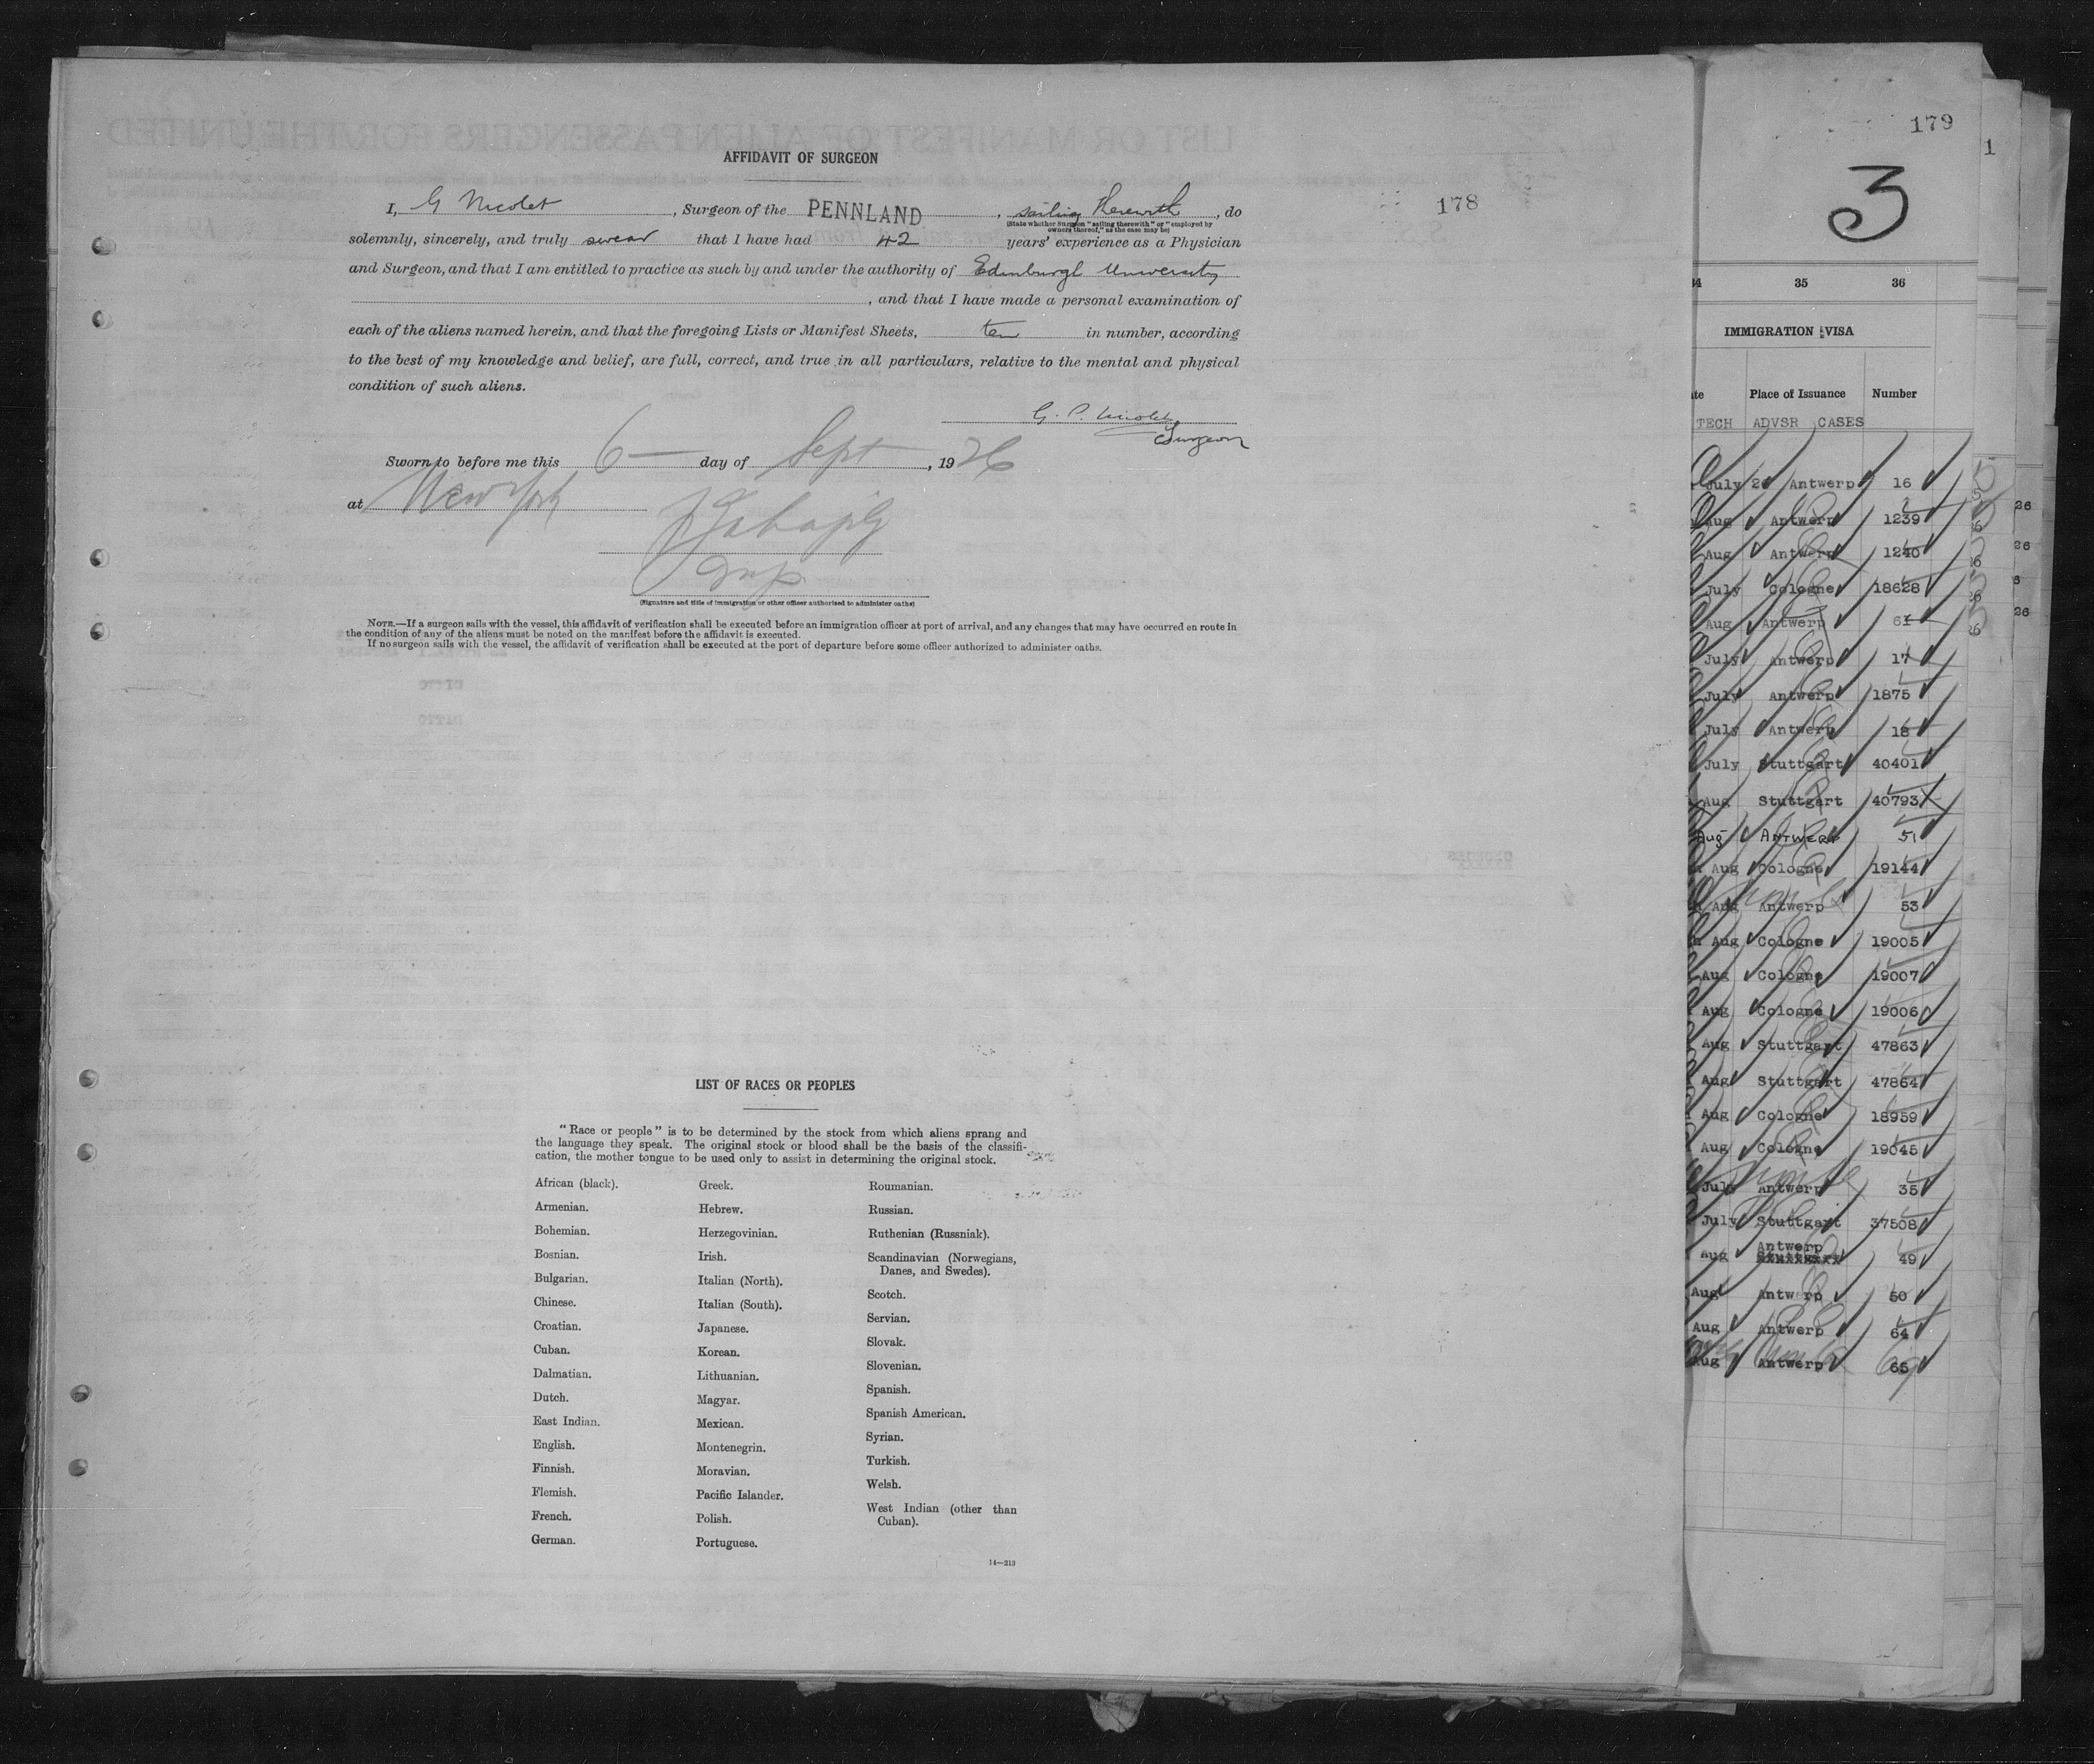 AFFIDAVIT OF SURGEON
I, G Nicolet, Surgeon of the PENNLAND, sailing therewith, do
(State whether Surgeon "sailing therewith" or "employed by owners thereof," as the case may be)
solemnly, sincerely, and truly swear that I have had 42 years' experience as a Physician
and Surgeon, and that I am entitled to practice as such by and under the authority of Edinburgh University
, and that I have made a personal examination of
each of the aliens named herein, and that the foregoing Lists or Manifest Sheets, ten in number, according
to the best of my knowledge and belief, are full, correct, and true in all particulars, relative to the mental and physical
condition of such aliens.
G. P. Nicolet
Surgeon
Sworn to before me this 6 day of Sept, 1926
at New York
Insp
(Signature and title of immigration or other officer authorized to administer oaths)
NOTE.—If a surgeon sails with the vessel, this affidavit of verification shall be executed before an immigration officer at port of arrival, and any changes that may have occurred en route in
the condition of any of the aliens must be noted on the manifest before the affidavit is executed.
If no surgeon sails with the vessel, the affidavit of verification shall be executed at the port of departure before some officer authorized to administer oaths.
178
LIST OF RACES OR PEOPLES
"Race or people" is to be determined by the stock from which aliens sprang and
the language they speak. The original stock or blood shall be the basis of the classifi-
cation, the mother tongue to be used only to assist in determining the original stock.
African (black).
Armenian.
Bohemian.
Bosnian.
Bulgarian.
Chinese.
Croatian.
Cuban.
Dalmatian.
Dutch.
East Indian.
English.
Finnish.
Flemish.
French.
German.
Greek.
Hebrew.
Herzegovinian.
Irish.
Italian (North).
Italian (South).
Japanese.
Korean.
Lithuanian.
Magyar.
Mexican.
Montenegrin.
Moravian.
Pacific Islander.
Polish.
Portuguese.
Roumanian.
Russian.
Ruthenian (Russniak).
Scandinavian (Norwegians,
Danes, and Swedes).
Scotch.
Servian.
Slovak.
Slovenian.
Spanish.
Spanish American.
Syrian.
Turkish.
Welsh.
West Indian (other than
Cuban).
14—213
179
3
34 35 36
IMMIGRATION VISA
Place of Issuance Number
TECH ADVSR CASES
July 26 Antwerp 16
Aug Antwerp 1239
Aug Antwerp 1240
July Cologne 18628
Aug Antwerp 61
July Antwerp 17
July Antwerp 1875
July Antwerp 18
July Stuttgart 40401
Aug Stuttgart 40793
Aug ANTWERP 51
Aug Cologne 19144
Aug Antwerp 53
Aug Cologne 19005
Aug Cologne 19007
Aug Cologne 19006
Aug Stuttgart 47863
Aug Stuttgart 47864
Aug Cologne 18959
Aug Cologne 19045
July Antwerp 35
July Stuttgart 37508
Aug Antwerp 49
Aug Antwerp 50
Aug Antwerp 64
Aug Antwerp 65
1
26
26
6
26